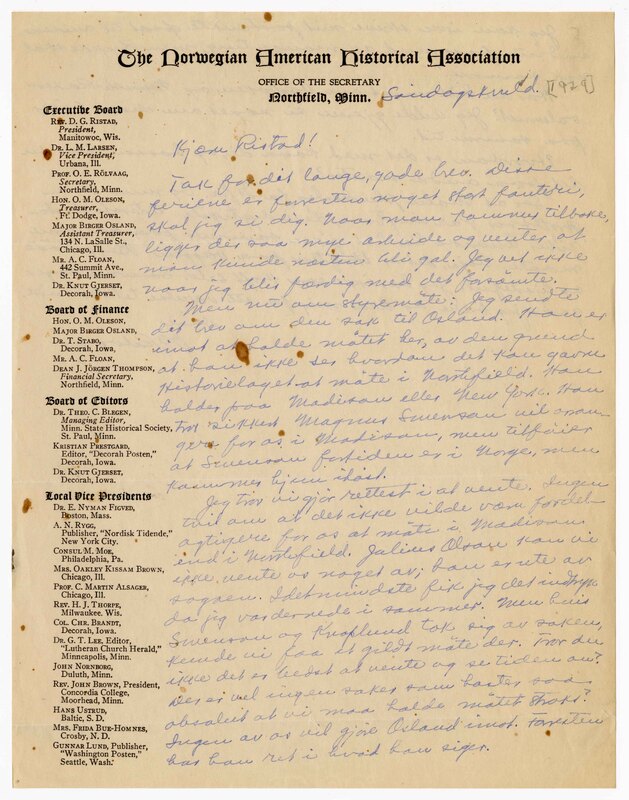 The Norwegian American Historical Association
OFFICE OF THE SECRETARY
Northfield, Minn.
Søndagskveld. [1929]
Executive Board
REV. D. G. RISTAD,
President,
Manitowoc, Wis.
DR. L. M. LARSEN,
Vice President,
Urbana, Ill.
PROF. O. E. RÖLVAAG,
Secretary,
Northfield, Minn.
HON. O. M. OLESON,
Treasurer,
Ft. Dodge, Iowa.
MAJOR BIRGER OSLAND,
Assistant Treasurer,
134 N. LaSalle St.,
Chicago, Ill.
MR. A. C. FLOAN,
442 Summit Ave.,
St. Paul, Minn.
DR. KNUT GJERSET,
Decorah, Iowa.
Board of Finance
HON. O. M. OLESON,
MAJOR BIRGER OSLAND,
DR. T. STABO,
Decorah, Iowa.
MR. A. C. FLOAN,
DEAN J. JÖRGEN THOMPSON,
Financial Secretary,
Northfield, Minn.
Board of Editors
DR. THEO. C. BLEGEN,
Managing Editor,
Minn. State Historical Society,
St. Paul, Minn.
KRISTIAN PRESTGARD,
Editor, "Decorah Posten,"
Decorah, Iowa.
DR. KNUT GJERSET,
Decorah, Iowa.
Local Vice Presidents
DR. E. NYMAN FIGVED,
Boston, Mass.
A. N. RYGG,
Publisher, "Nordisk Tidende,"
New York City.
CONSUL M. MOE,
Philadelphia, Pa.
MRS. OAKLEY KISSAM BROWN,
Chicago, Ill.
PROF. C. MARTIN ALSAGER,
Chicago, Ill.
REV. H. J. THORPE,
Milwaukee, Wis.
COL. CHR. BRANDT,
Decorah, Iowa.
DR. G. T. LEE, Editor,
"Lutheran Church Herald,"
Minneapolis, Minn.
JOHN NORNBORG,
Duluth, Minn.
REV. JOHN BROWN, President,
Concordia College,
Moorhead, Minn.
HANS USTRUD,
Baltic, S. D.
MRS. FRIDA BUE-HOMNES,
Crosby, N. D.
GUNNAR LUND, Publisher,
"Washington Posten,"
Seattle, Wash.
Kjære Ristad!
Tak for dit lange, gode brev. Disse
feriene er forresten noget stort fanteri,
skal jeg si dig. Naar man kommer tilbake,
ligger der saa mye arbeide og venter at
man kunde næsten bli gal. Jeg vet ikke
naar jeg blir færdig med det forsømte.
Men nu om styremøte: Jeg sendte
dit brev om den sak til Osland. Han er
imot at holde møtet her, av den grund
at han ikke ser hvordan det kan gavne
Historielaget at møte i Northfield. Han
holder paa Madison eller New York. Han
tror sikkert Magnus Swenson vil
for os i Madison, men tilføier
at Swenson fortiden er i Norge, men
kommer hjem i høst.
Jeg tror vi gjør rettest i at vente. Ingen
tvil om at det ikke vilde være fordel
agtigere for os at møte i Madison
end i Northfield. Julius Olson kan vi
ikke vente os noget av; han er ute av
sagaen. I det mindste fik jeg det indtryk
da jeg var dernede i sommer. Men hvis
Swenson og Knaplund tok sig av saken,
kunde vi faa et gildt møte der. Tror du
ikke det er bedst at vente og se tiden an?
Der er vel ingen saker som haster saa
absolut at vi maa holde møtet straks?
Ingen av os vil gjøre Osland imot. Forresten
har han ret i hvad han sier.